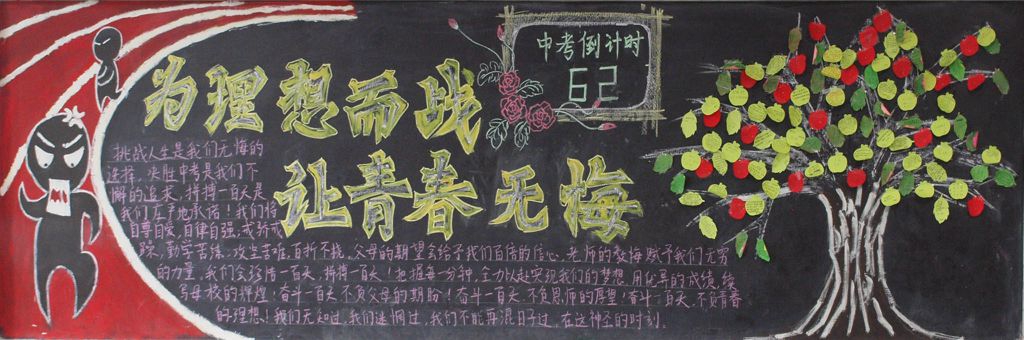 中考倒计时
62
为理想而战
让青春无悔
挑战人生是我们无悔的
选择,决胜中考是我们不
懈的追求,拼搏一百天是
我们庄严地承诺!我们将
自尊自爱,自律自强,戒骄戒
躁,勤学苦练,攻坚苦难,百折不挠,父母的期望会给予我们百倍的信心,老师的教悔赋予我们无穷
的力量,我们会珍惜一百天,拼搏一百天!把握每一分钟,全力以赴实现我们的梦想,用优异的成绩,续
写母校的辉煌!奋斗一百天,不负父母的期盼!奋斗一百天,不负恩师的厚望!奋斗一百天,不负青春
的理想!我们无知过,我们迷惘过,我们不能再混日子过,在这神圣的时刻,